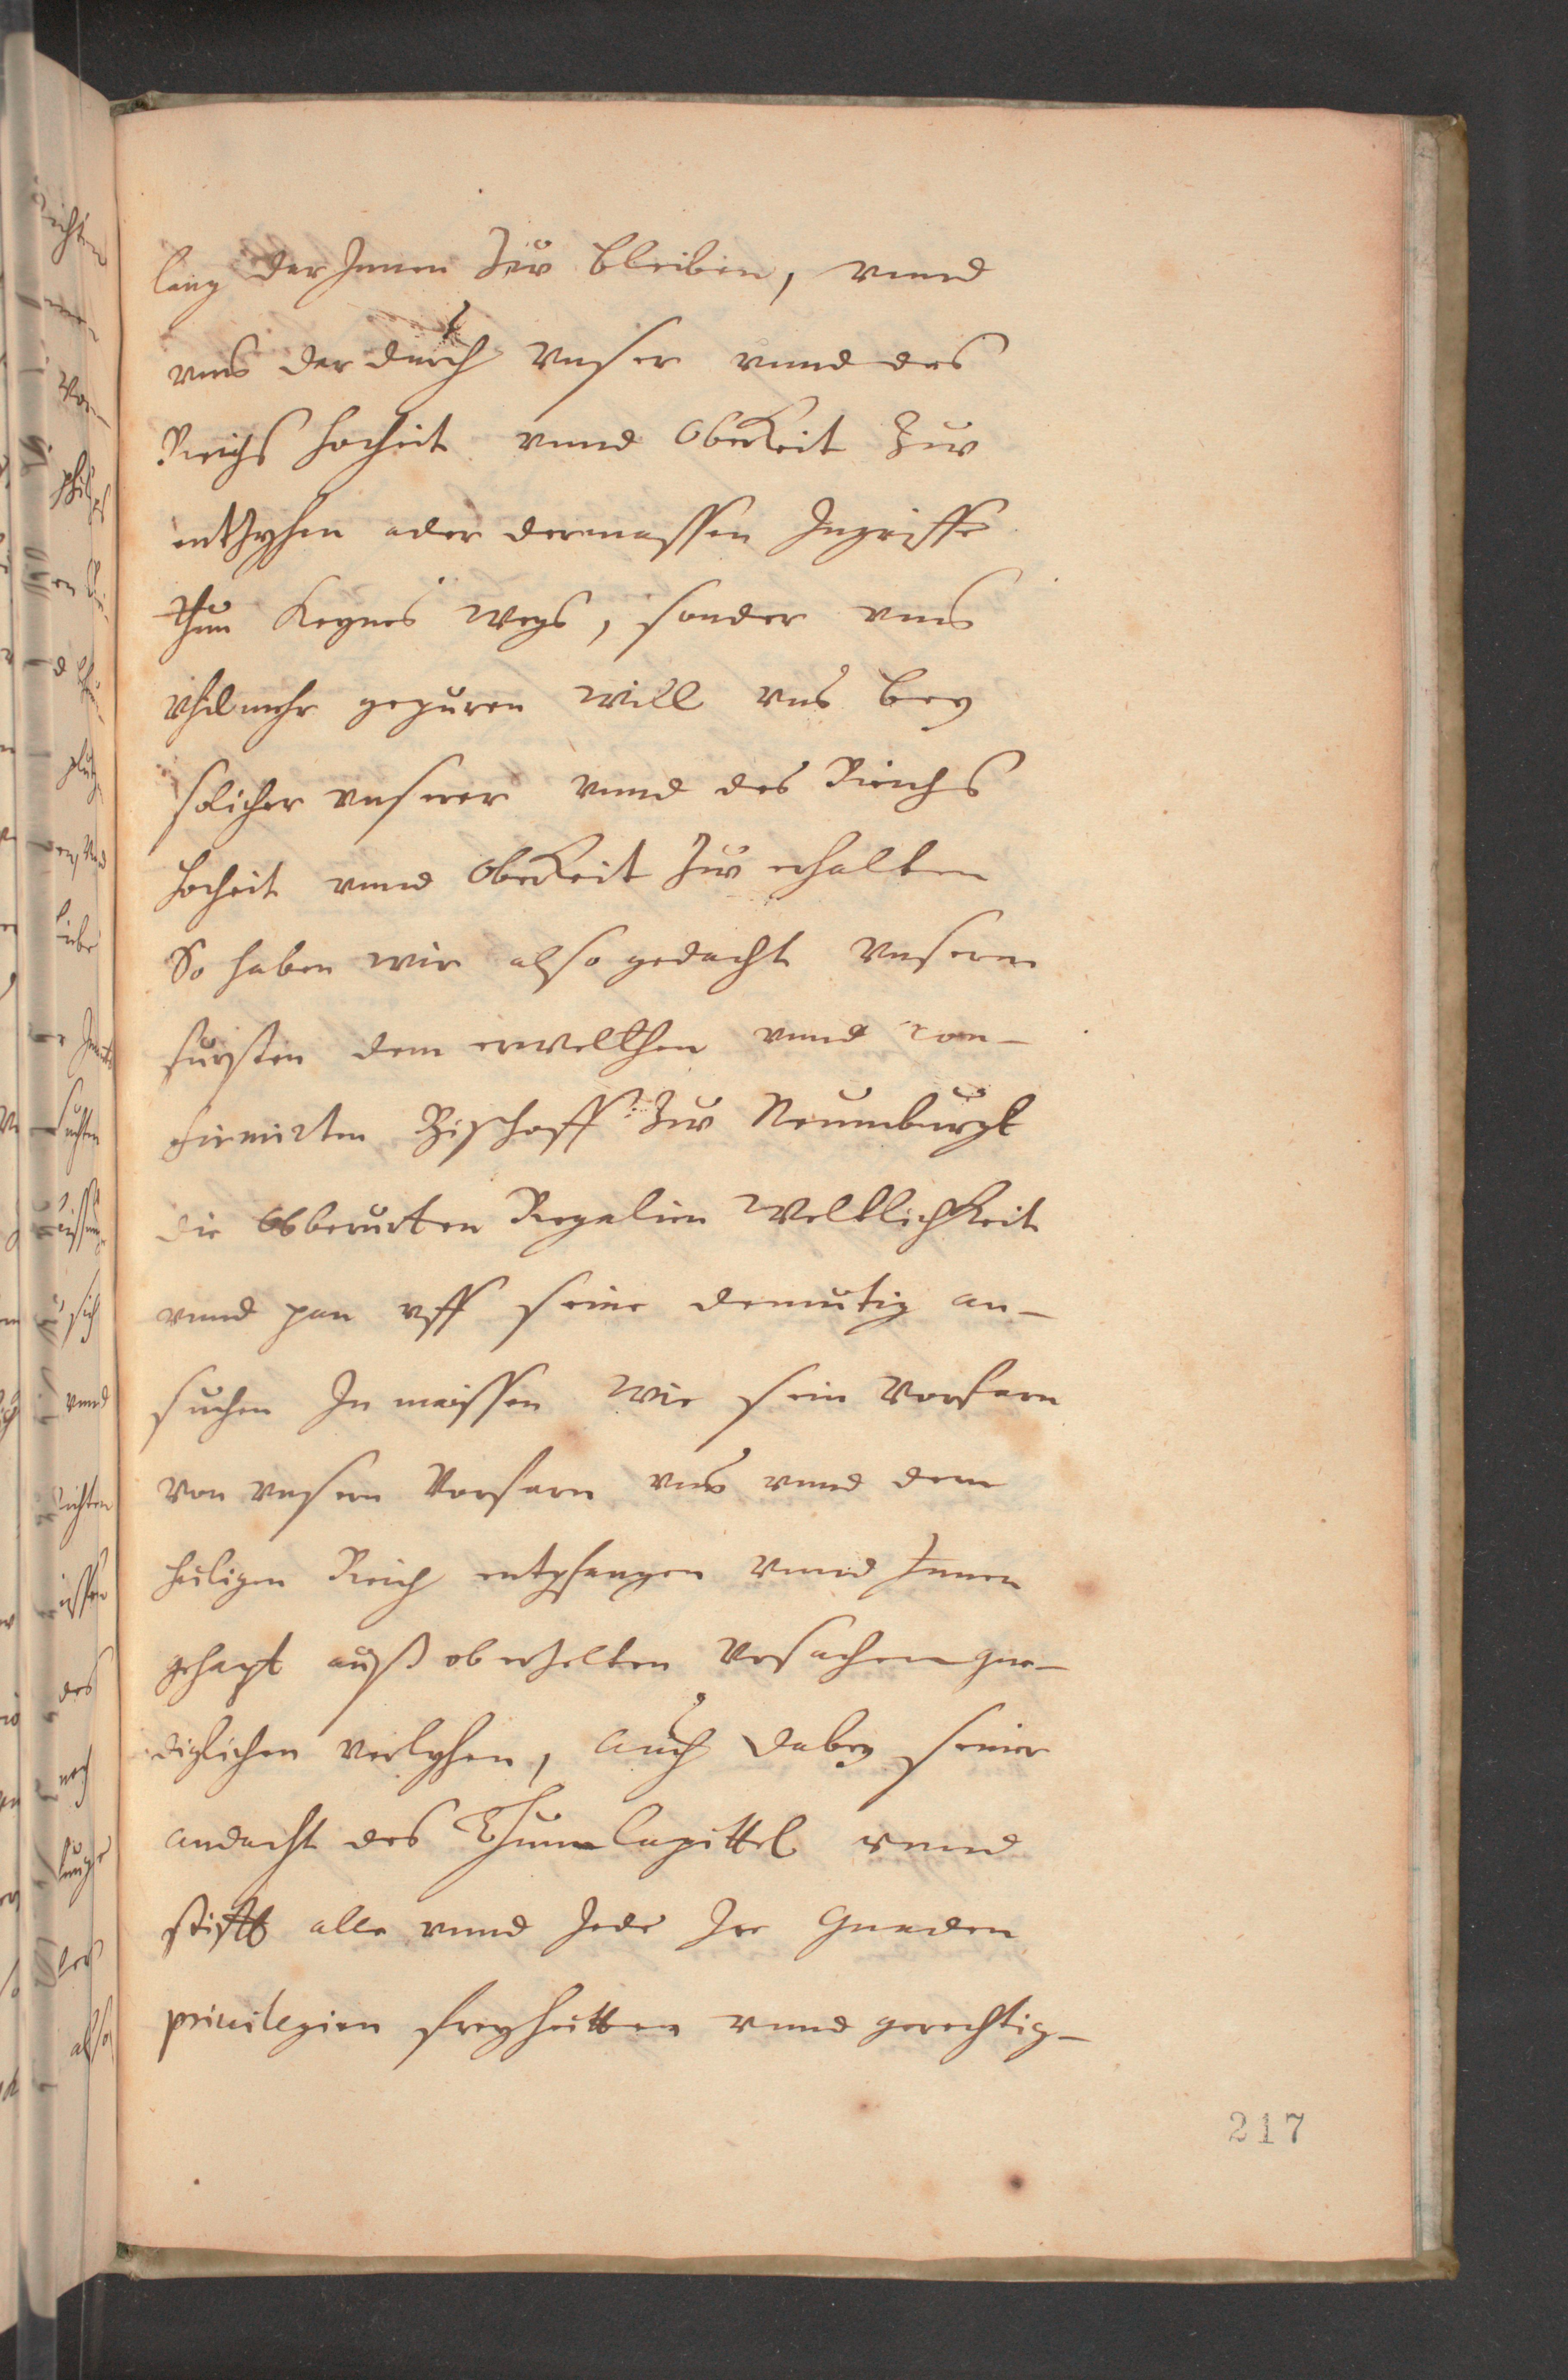 lang dar Innen Zuv bleiben, vnnd
vns dar durch vnser vnnd des
Reichs hocheit vnnd oberkeit Zuv
entzyhen ader dermassen Ingriffe
thun keynes wegs, sonder vns
vhilmehr gepuren will vns bey
solicher vnserer vnnd des Reichs
hocheit vnnd oberkeit Zuv erhalten
So haben wir also gedacht vnserm
fursten dem erwelthen vnnd con-
firmirten Bischoff Zuv Neumburgk
die obberurten Regalien Weltlichkeit
vnnd pan vff seine demutig an-
suchen In maissen wie sein Vorfarn
von vnsern Vorfarn vns vnnd dem
heiligen Reich entpfangen vnnd Innen
gehapt auß oberzelten Vrsachen gne-
diglichen verlyhen, auch dabey seiner
andacht des Thum Capittel vnnd
stifft alle vnnd Jede Ire Gnaden
priuilegien freyheitten vnnd gerechtig-
217